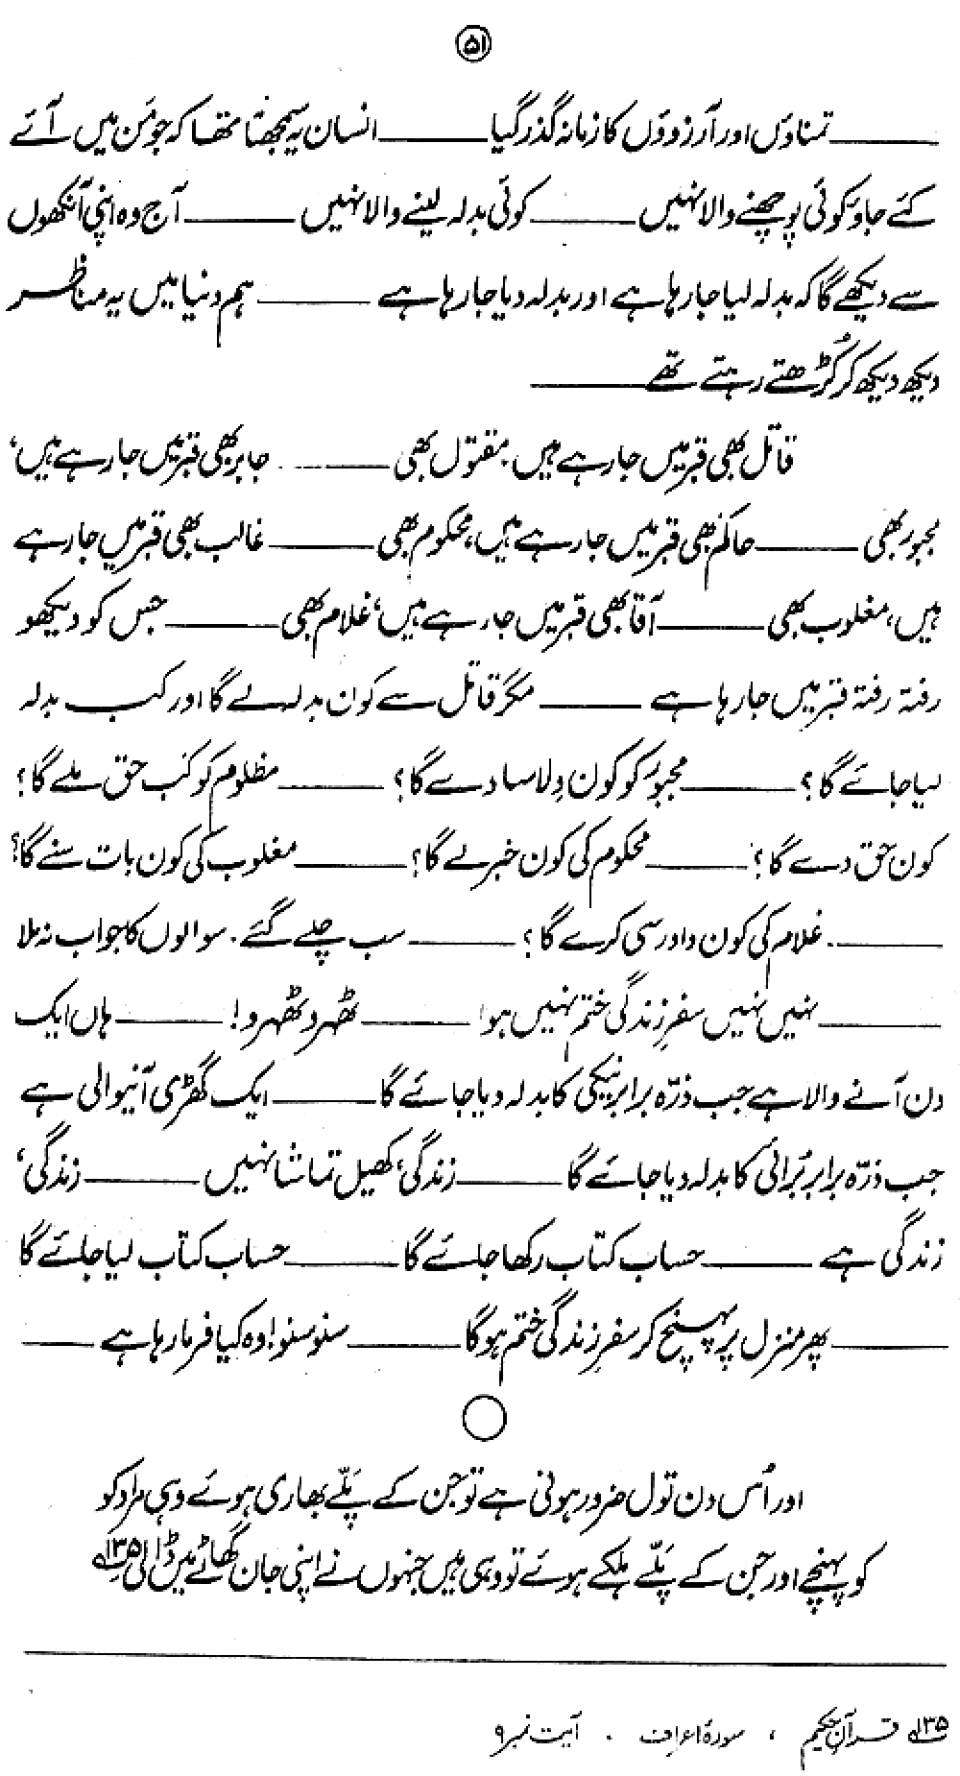 ۵۱
ــــــ تمناؤں اور آرزوؤں کا زمانہ گذر گیا ــــــ انسان یہ سمجھتا تھا کہ جو من میں آئے
کئے جاؤ کوئی پوچھنے والا نہیں ــــــ کوئی بدلہ لینے والا نہیں ــــــ آج وہ اپنی آنکھوں
سے دیکھے گا کہ بدلہ لیا جا رہا ہے اور بدلہ دیا جا رہا ہے ــــــ ہم دنیا میں یہ مناظر
دیکھ دیکھ کر کُڑھتے رہتے تھے ــــــ
قاتل بھی قبر میں جا رہے ہیں، مقتول بھی ــــــ جابر بھی قبر میں جا رہے ہیں،
مجبور بھی ــــــ حاکم بھی قبر میں جا رہے ہیں، محکوم بھی ــــــ غالب بھی قبر میں جا رہے
ہیں، مغلوب بھی ــــــ آقا بھی قبر میں جا رہے ہیں، غلام بھی ــــــ جس کو دیکھو
رفتہ رفتہ قبر میں جا رہا ہے ــــــ مگر قاتل سے کون بدلہ لے گا اور کب بدلہ
لیا جائے گا؟ ــــــ مجبور کو کون دِلاسا دے گا؟ ــــــ مظلوم کو کب حق ملے گا؟
کون حق دے گا؟ ــــــ محکوم کی کون خبر لے گا؟ ــــــ مغلوب کی کون بات سنے گا؟
ــــــ غلام کی کون دادرسی کرے گا؟ ــــــ سب چلے گئے۔ سوالوں کا جواب نہ ملا
ــــــ نہیں نہیں سفرِ زندگی ختم نہیں ہوا ــــــ ٹھہرو ٹھہرو! ــــــ ہاں ایک
دن آنے والا ہے جب ذرّہ برابر نیکی کا بدلہ دیا جائے گا ــــــ ایک گھڑی آنیوالی ہے
جب ذرّہ برابر بُرائی کا بدلہ دیا جائے گا ــــــ زندگی، کھیل تماشا نہیں ــــــ زندگی،
زندگی ہے ــــــ حساب کتاب رکھا جائے گا ــــــ حساب کتاب لیا جائے گا
ــــــ پھر منزل پر پہنچ کر سفرِ زندگی ختم ہو گا ــــــ سنو سنو! وہ کیا فرما رہا ہے ــــــ
اور اُس دن تول ضرور ہونی ہے تو جن کے پلّے بھاری ہوئے وہی مراد کو
کو پہنچے اور جن کے پلّے ہلکے ہوئے تو وہی ہیں جنہوں نے اپنی جان گھاٹے میں ڈالی ۱۳۵؎
۱۳۵؎ قرآن حکیم، سورۂ اعراف۔ آیت نمبر ۹